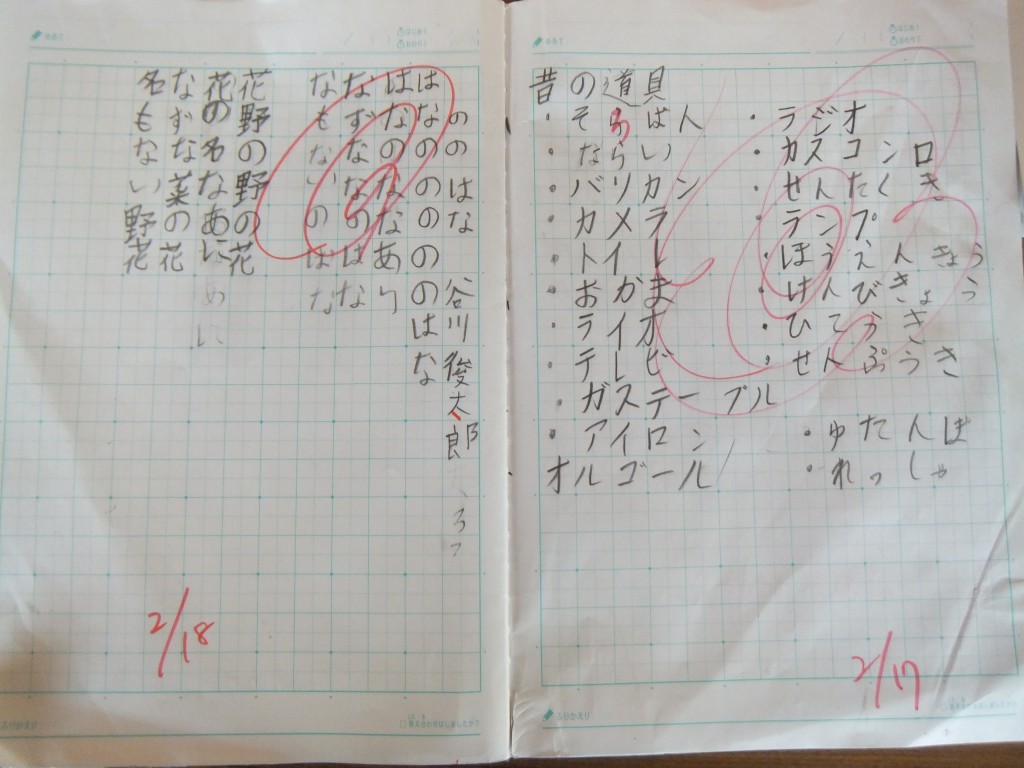 ののはな 谷川俊太郎
はなのののののはな
はなのななあに
なずななのはな
なもないのはな
花野の野の花
花の名なあに
なずな菜の花
名もない野花
2/18
昔の道具
・そろばん ・ラジオ
・たらい ・カスコンロ
・バリカン ・せんたくき
・カメラ ・ランプ
・トイレ ・ぼうえんきょう
・おかま ・けんびきょう
・ライオ ・ひこうき
・テレビ ・せんぷうき
・ガステーブル
・アイロン ・ゆたんぽ
オルゴール ・れっしゃ
2/17
ふりかえり